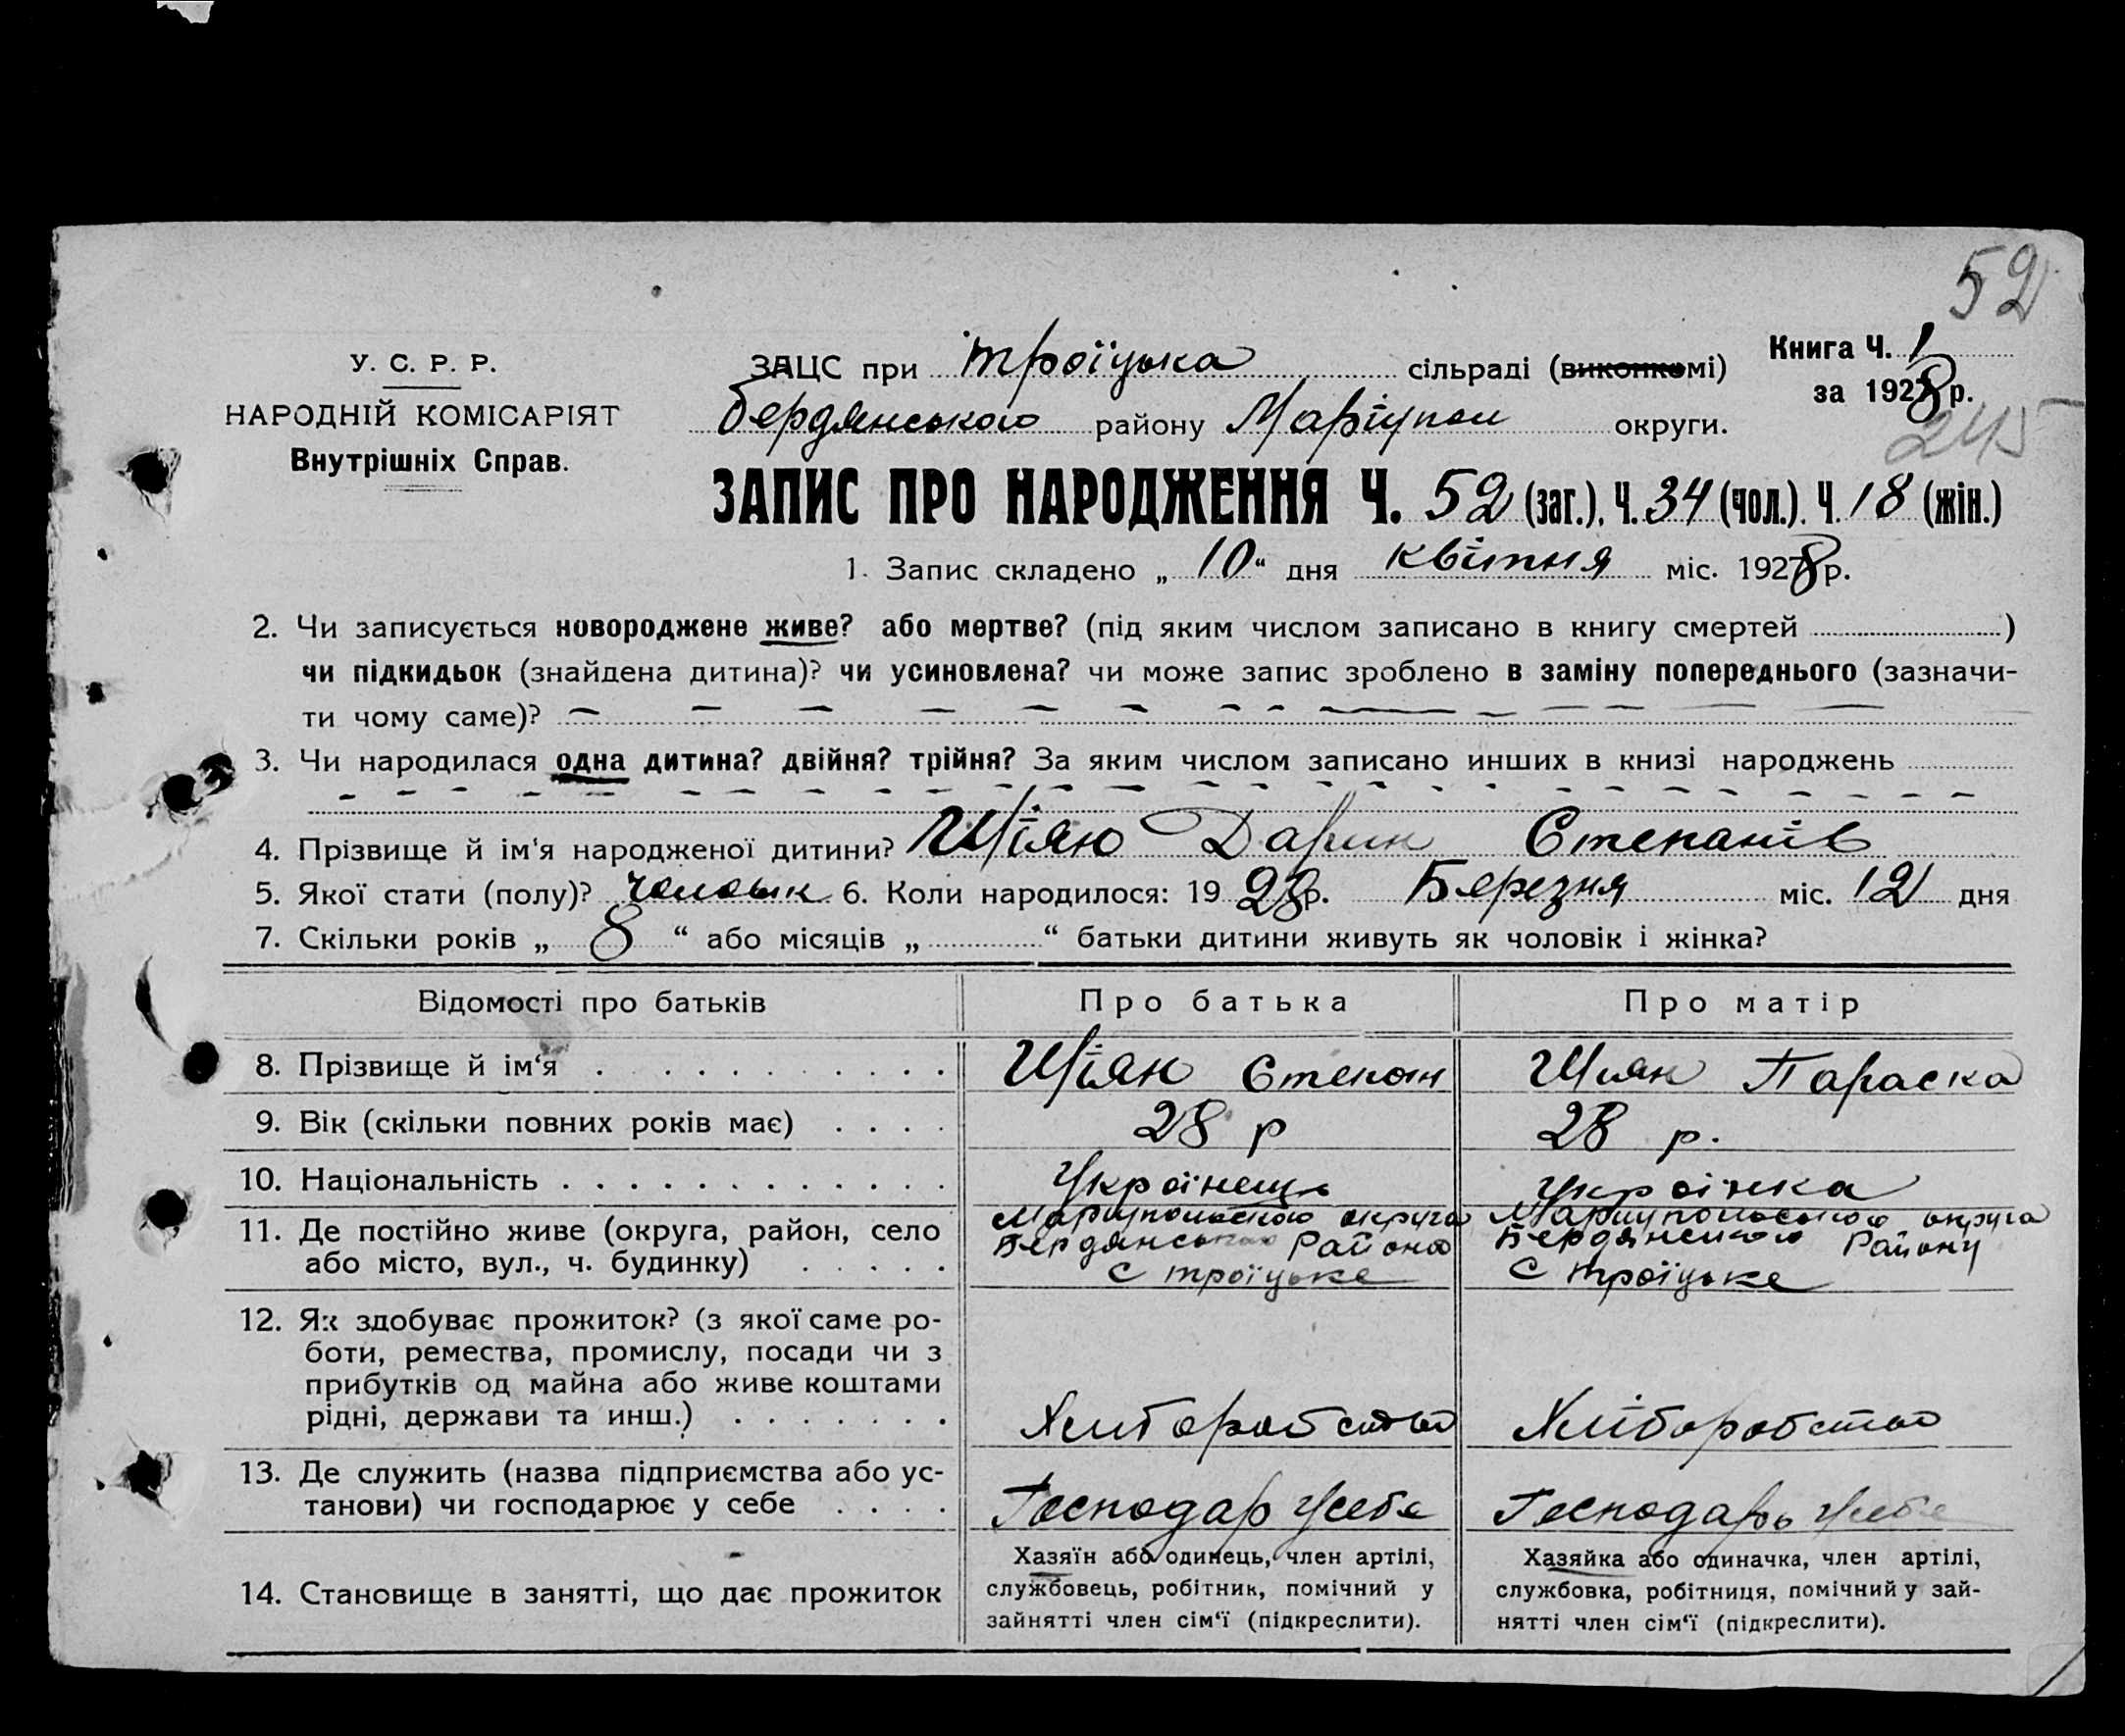 52
У. С. Р. Р.
НАРОДНІЙ КОМІСАРІЯТ
Внутрішніх Справ.
ЗАЦС при троїцька сільраді (виконкомі)
Книга Ч. 1
за 1928 р.
бердянського району Маріупол округи.
245
ЗАПИС ПРО НАРОДЖЕННЯ Ч. 52 (заг.). Ч. 34 (чол.). Ч. 18 (жін.)
1. Запис складено „ 10 “ дня квітня міс. 1928 р.
2. Чи записується новороджене живе? або мертве? (під яким числом записано в книгу смертей )
чи підкидьок (знайдена дитина)? чи усиновлена? чи може запис зроблено в заміну попереднього (зазначи-
ти чому саме)?
3. Чи народилася одна дитина? двійня? трійня? За яким числом записано инших в книзі народжень
4. Прізвище й ім'я народженої дитини? Степанів
5. Якої стати (полу)? 6. Коли народилося: 1928 р. Березня міс. 12 дня
7. Скільки років „ 8 “ або місяців „ “ батьки дитини живуть як чоловік і жінка?
Відомості про батьків Про батька Про матір
8. Прізвище й ім‘я Шіян Степан Шиян Параска
9. Вік (скільки повних років має) 28 р 28 р.
10. Національність Українець Українка
11. Де постійно живе (округа, район, село
або місто, вул., ч. будинку)
Маріупольского округа
Бердянського Района
с троїцьке
Маріупольского округа
Бердянського Району
с троїцьке
12. Як здобуває прожиток? (з якої саме ро-
боти, ремества, промислу, посади чи з
прибутків од майна або живе коштами
рідні, держави та инш.) Хліборобство Хліборобство
13. Де служить (назва підприємства або ус-
танови) чи господарює у себе Господар усебе Господарь усебе
14. Становище в занятті, що дає прожиток
Хазяїн або одинець, член артілі,
службовець, робітник, помічний у
зайнятті член сім‘ї (підкреслити).
Хазяйка або одиначка, член артілі,
службовка, робітниця, помічний у зай-
нятті член сім‘ї (підкреслити).